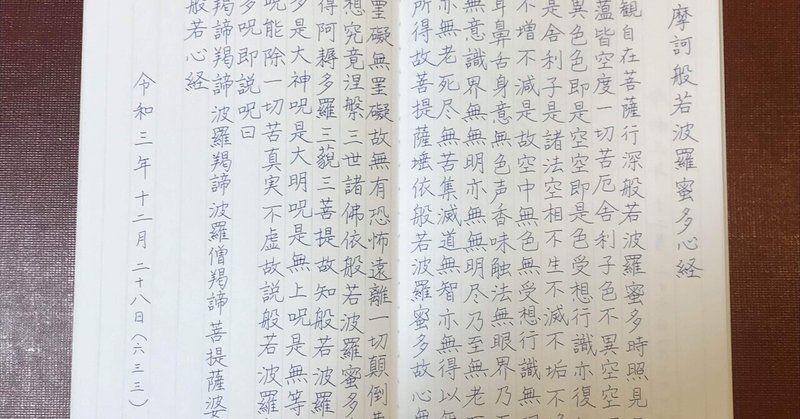 摩訶般若波羅蜜多心経
観自在菩薩行深般若波羅蜜多時照見
蘊皆空度一切苦厄舎利子色不異空空
異色色即是空空即是色受想行識亦復
是舎利子是諸法空相不生不滅不垢不
不増不減是故空中無色無受想行識無
耳鼻舌身意無色声香味触法無眼界乃
無意識界無無明亦無無明尽乃至無老
亦無老死尽無苦集滅道無智亦無得以
所得故菩提薩埵依般若波羅蜜多故心
罣礙無罣礙故無有恐怖遠離一切顛倒
想究竟涅槃三世諸佛依般若波羅蜜多
得阿耨多羅三藐三菩提故知般若波羅
多是大神呪是大明呪是無上呪是無等
呪能除一切苦真実不虚故説般若波羅
多呪即説呪曰
羯諦羯諦波羅羯諦波羅僧羯諦菩提薩婆
般若心経
令和三年十二月二十八日(六三三)